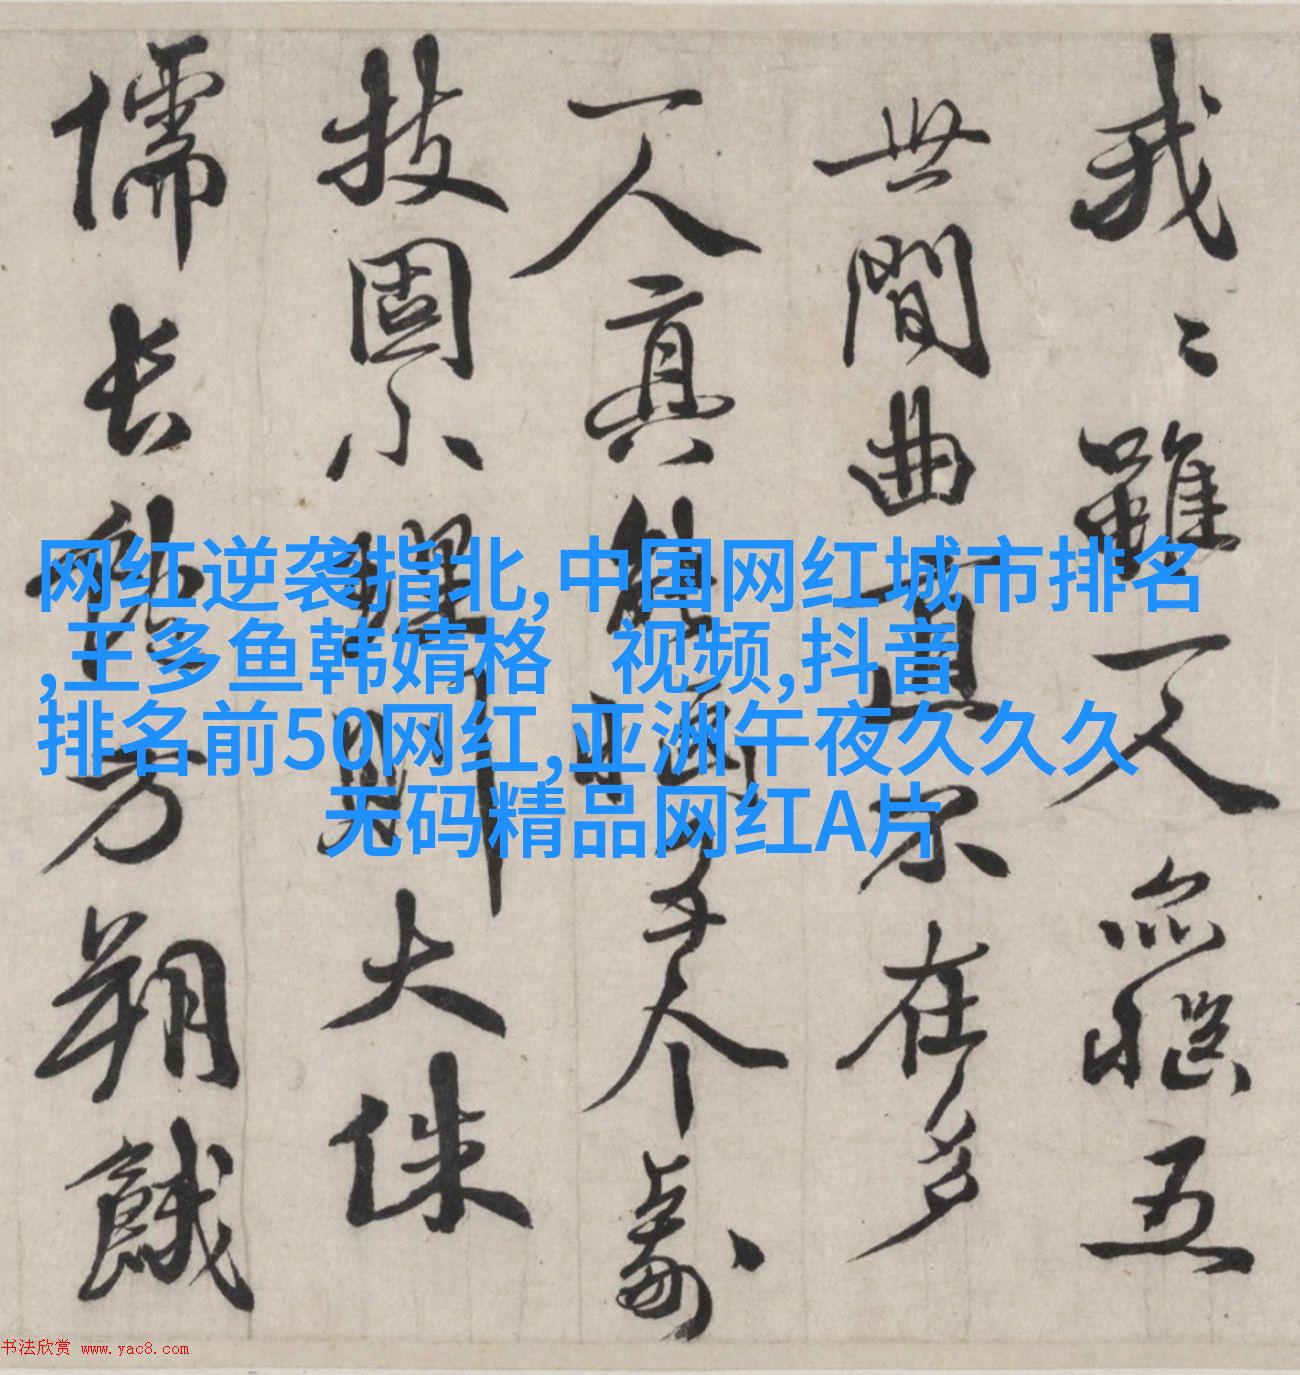 网红逆袭指北,中国网红城市排名
,王多鱼韩婧格 视频,抖音
排名前50网红,亚洲午夜久久久
无码精品网红A片
我〻雖一人
五
世間曲直不在多
一人真
技固小 則大侏
儒長飽方朔餓
书法欣赏 www.yac8.com